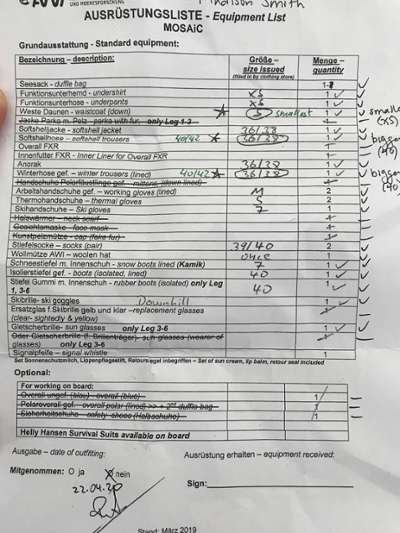 UND MEERESFORSCHUNG
Smith
AUSRÜSTUNGSLISTE - Equipment List
MOSAiC
Grundausstattung - Standard equipment:
Bezeichnung – description: Größe – size issued (filled in by clothing store) Menge – quantity
Seesack - duffle bag 1
Funktionsunterhemd - undershirt XS 1
Funktionsunterhose - underpants XS 1
Weste Daunen - waistcoat (down) S smallest 1 smaller (XS)
Jacke Parka m. Pelz - parka with fur, only Leg 1-3 1
Softshelljacke - softshell jacket 36/38 1
Softshellhose – softshell trousers 40/42 36/38 1 bigger (40)
Overall FXR 1
Innenfutter FXR - Inner Liner for Overall FXR 1
Anorak 36/38 1
Winterhose gef. – winter trousers (lined) 40/42 36/38 1 bigger (40)
Handschuhe Polarfäustlinge gef. - mittens, (down lined) 1
Arbeitshandschuhe gef. – working gloves (lined) M 2
Thermohandschuhe – thermal gloves S 2
Skihandschuhe – Ski gloves 7 1
Halswärmer – neck scarf 1
Gesichtsmaske – face mask 1
Kunstpelzmütze - cap (fake fur) 1
Stiefelsocke – socks (pair) 39/40 2
Wollmütze AWI – woolen hat once 1
Schneestiefel m. Innenschuh - snow boots lined (Kamik) 7 1
Isolierstiefel gef. - boots (isolated, lined) 40 1
Stiefel Gummi m. Innenschuh - rubber boots (isolated) only Leg 1, 3-6 40 1
Skibrille- ski goggles Downhill 1
Ersatzglas f.Skibrille gelb und klar –replacement glasses (clear- sightedly & yellow) 1
Gletscherbrille- sun glasses only Leg 3-6 1
Oder Gletscherbrille (f. Brillenträger)- sun glasses (wearer of glasses) only Leg 3-6 1
Signalpfeife – signal whistle 1
Set Sonnenschutzmilch, Lippenpflegestift, Retoursiegel inbegriffen – Set of sun cream, lip balm, retour seal included
Optional:
For working on board:
Overall ungef. (blau) - overall (blue) 1
Polaroverall gef. - overall polar (lined) >> + 2nd duffle bag 1
Sicherheitsschuhe – safety shoes (Halbschuhe) 1
Helly Hansen Survival Suits available on board
Ausgabe – date of outfitting: Ausrüstung erhalten – equipment received:
Mitgenommen: O ja nein
22.04.20
Sign:
Stand: März 2019